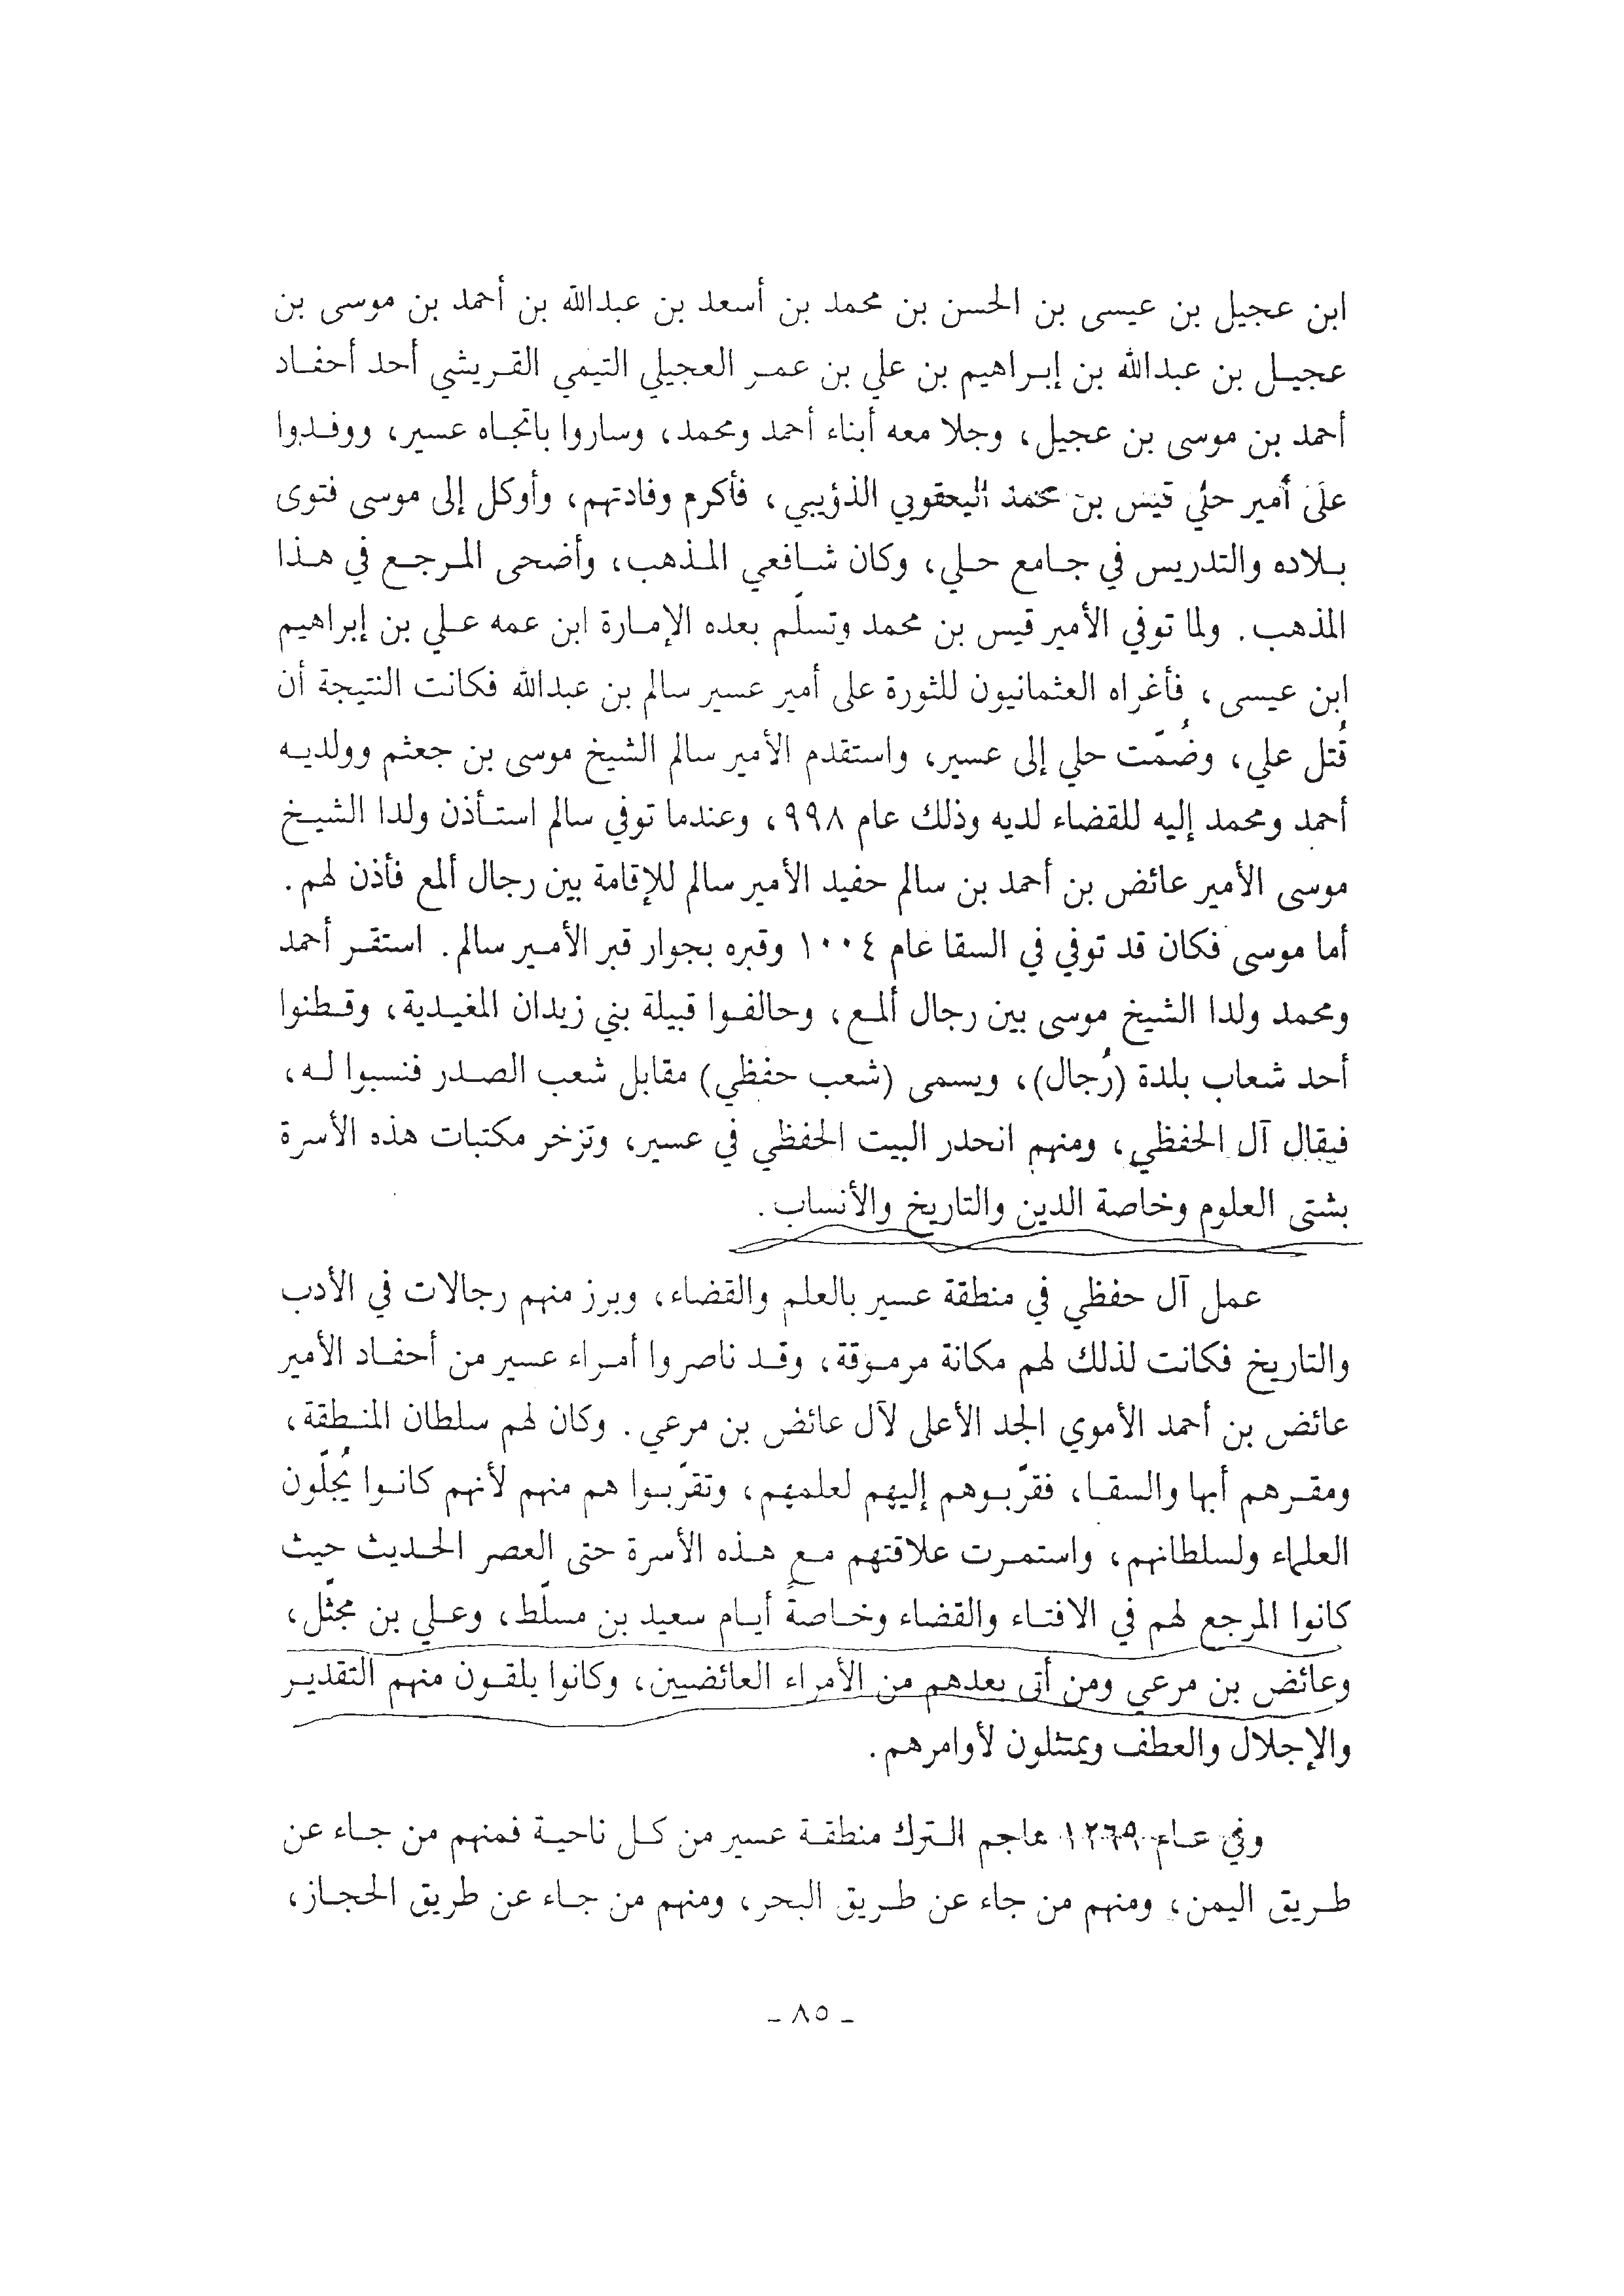 ابن عجيل بن عيسى بن الحسن بن محمد بن أسعد بن عبدالله بن أحمد بن موسى بن
عجيـل بن عبدالله بن إبـراهيم بن علي بن عمـر العجيلي التيمي القـريشي أحد أحفـاد
أحمد بن موسى بن عجيل، وجلا معه أبناء أحمد ومحمد، وساروا باتجـاه عسير، ووفـدوا
على أمير حلي قيس بن محمد اليعقوبي الذؤيبي، فأكرم وفادتهم، وأوكل إلى موسى فتوى
بـلاده والتدريس في جـامع حـلي، وكان شـافعي المـذهب، وأضحى المـرجـع في هـذا
المذهب. ولما توفي الأمير قيس بن محمد وتسلّم بعده الإمـارة ابن عمه عـلي بن إبراهيم
ابن عيسى، فأغراه العثمانيون للثورة على أمير عسير سالم بن عبدالله فكانت النتيجة أن
قُتل علي، وضُمّت حلي إلى عسير، واستقدم الأمير سالم الشيخ موسى بن جعثم وولديـه
أحمد ومحمد إليه للقضاء لديه وذلك عام ٩٩٨، وعندما توفي سالم استـأذن ولدا الشيـخ
موسى الأمير عائض بن أحمد بن سالم حفيد الأمير سالم للإقامة بين رجال ألمع فأذن لهم.
أما موسى فكان قد توفي في السقا عام ١٠٠٤ وقبره بجوار قبر الأمـير سالم. استقـر أحمد
ومحمد ولدا الشيخ موسى بين رجال ألمـع، وحالفـوا قبيلة بني زيدان المغيـدية، وقـطنوا
أحد شعاب بلدة (رُجال)، ويسمى (شعب حفظي) مقابل شعب الصـدر فنسبوا لـه،
فيقال آل الحفظي، ومنهم انحدر البيت الحفظي في عسير، وتزخر مكتبات هذه الأسرة
بشتى العلوم وخاصة الدين والتاريخ والأنساب.
عمل آل حفظي في منطقة عسير بالعلم والقضاء، وبرز منهم رجالات في الأدب
والتاريخ فكانت لذلك لهم مكانة مرمـوقة، وقـد ناصروا أمـراء عسير من أحفـاد الأمير
عائض بن أحمد الأموي الجد الأعلى لآل عائض بن مرعي. وكان لهم سلطان المنـطقة،
ومقـرهم أبها والسقـا، فقرّبـوهم إليهم لعلمهم، وتقرّبـوا هم منهم لأنهم كانـوا يُجلّون
العلماء ولسلطانهم، واستمـرت علاقتهم مـع هـذه الأسرة حتى العصر الحـديث حيث
كانوا المرجع لهم في الافتـاء والقضاء وخـاصةً أيـام سعيد بن مسلّط، وعـلي بن مجثّل،
وعائض بن مرعي ومن أتى بعدهم من الأمراء العائضيين، وكانوا يلقـون منهم التقديـر
والإجلال والعطف ويمتثلون لأوامرهم.
وفي عـام ١٢٦٩ هاجم الـترك منطقـة عسير من كـل ناحيـة فمنهم من جـاء عن
طـريق اليمن، ومنهم من جاء عن طـريق البحر، ومنهم من جـاء عن طريق الحجـاز،
ـ ٨٥ ـ